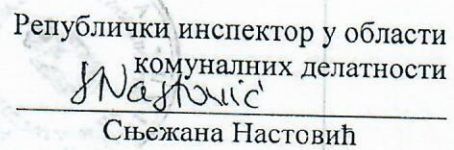 Републички инспектор у области
комуналних делатности
SNastović
Сњежана Настовић